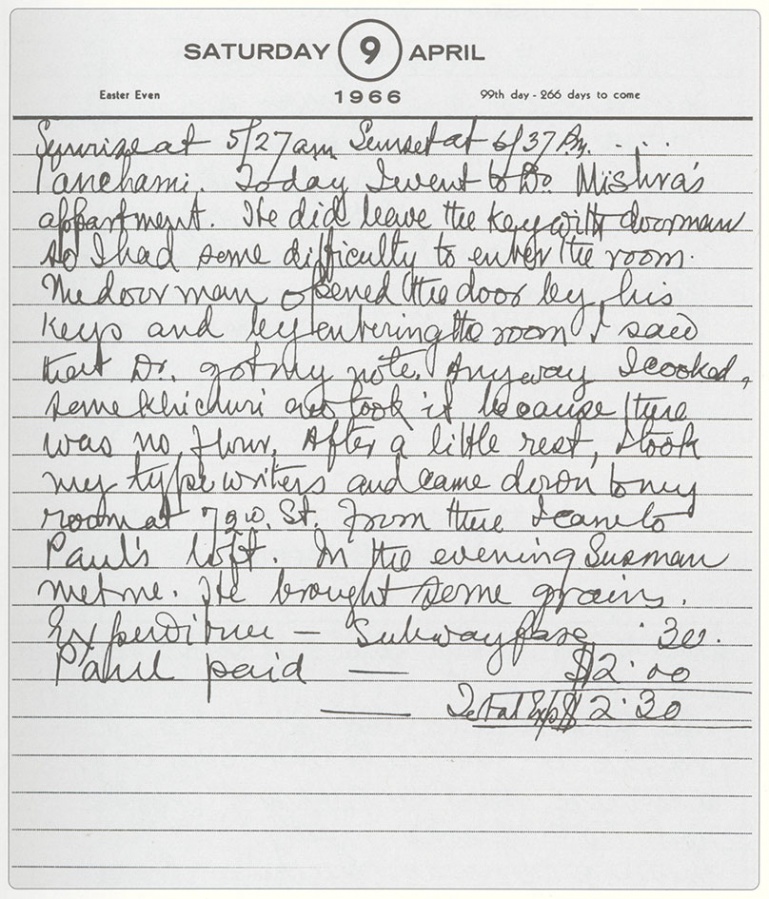 SATURDAY 9 APRIL
Easter Even 1966 99th day - 266 days to come
Sunrise at 5/27 am Sunset at 6/37 Pm. . . .
Panchami. Today I went to Dr. Mishra's
appartment. He did leave the key with doorman
so I had some difficulty to enter the room.
The door man opened the door by his
keys and by entering the room I saw
that Dr. got my note. Anyway I cooked,
some khichuri and took it because there
was no flour. After a little rest, I took
my typewriters and came down to my
room at 72 w. St. From there I came to
Paul's loft. In the evening Susman
met me. He brought some grains.
Expenditure — Subway fare .30.
Paul paid — $2.00
— Total Exp $ 2.30